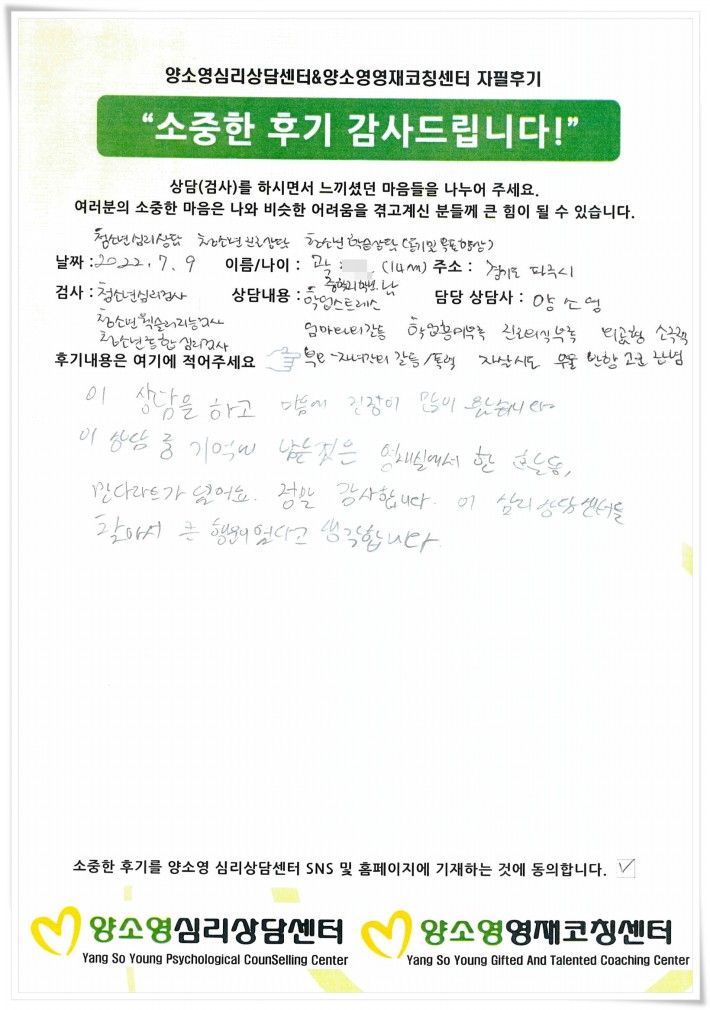 양소영심리상담센터&양소영영재코칭센터 자필후기
“소중한 후기 감사드립니다!”
상담(검사)를 하시면서 느끼셨던 마음들을 나누어 주세요.
여러분의 소중한 마음은 나와 비슷한 어려움을 겪고계신 분들께 큰 힘이 될 수 있습니다.
청소년심리상담 청소년진로상담 청소년학습상담(동기및목표향상)
날짜 : 2022. 7. 9 이름/나이 : (14m) 주소 : 경기도 파주시
중학교1학년 남
검사 : 청소년심리검사 상담내용 : 학업스트레스 담당 상담사 : 양소영
청소년웩슬러지능검사 엄마와의갈등 학업흥미부족 진로의식부족 비공형 소극적
청소년종합심리검사
후기내용은 여기에 적어주세요 부모-자녀간의 갈등/폭력 자살시도 우울 반항
이 상담을 하고 마음에 긴장이 많이
이 상담 중 기억에 남는것은 영재실에서 한 활동,
만다라트가 있어요. 정말 감사합니다. 이 심리상담센터를
찾아서 큰 행운이었다고 생각합니다.
소중한 후기를 양소영 심리상담센터 SNS 및 홈페이지에 기재하는 것에 동의합니다. ✓
양소영심리상담센터 양소영영재코칭센터
Yang So Young Psychological CounSelling Center Yang So Young Gifted And Talented Coaching Center